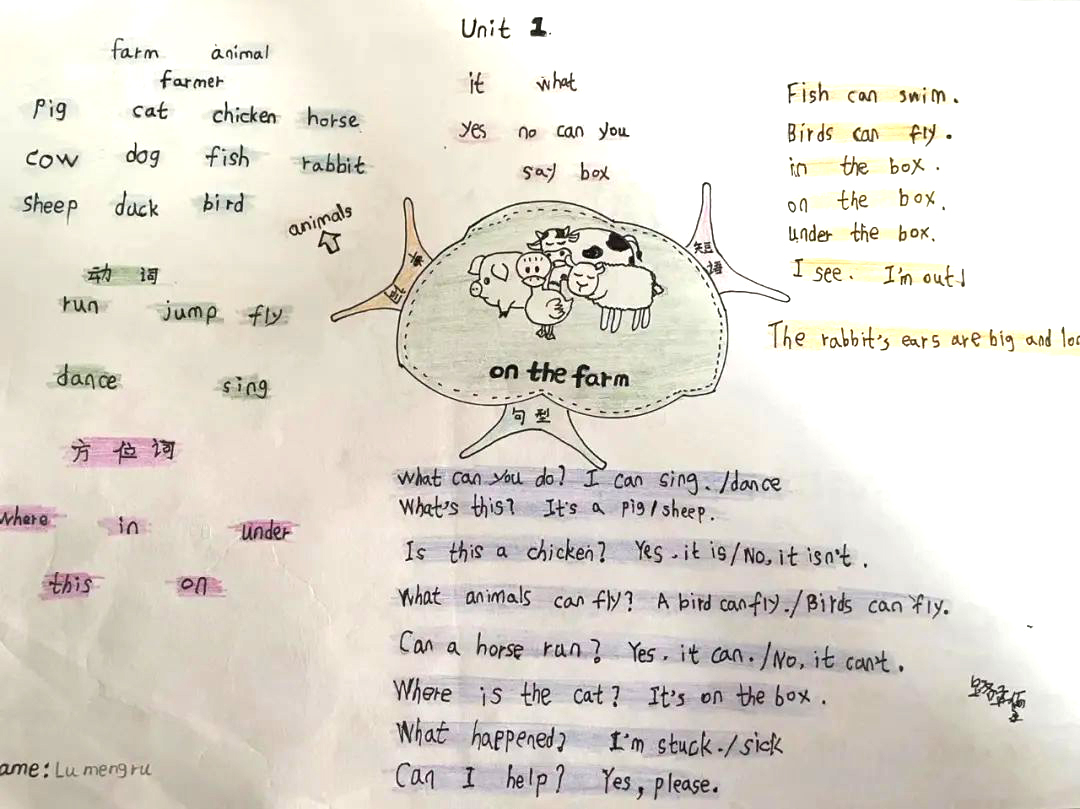 Unit 1.
farm animal
farmer
pig cat chicken horse
cow dog fish rabbit
sheep duck bird
animals
动词
run jump fly
dance sing
方位词
where in under
this on
it what
yes no can you
say box
短语
Fish can swim.
Birds can fly.
in the box.
on the box.
under the box.
I see. I'm out!
The rabbit's ears are big and
on the farm
句型
What can you do? I can sing./dance
What's this? It's a pig/sheep.
Is this a chicken? Yes. it is/No, it isn't.
What animals can fly? A bird can fly./Birds can fly.
Can a horse run? Yes. it can./No, it can't.
Where is the cat? It's on the box.
What happened? I'm stuck./sick
Can I help? Yes, please.
ame: Lu mengru